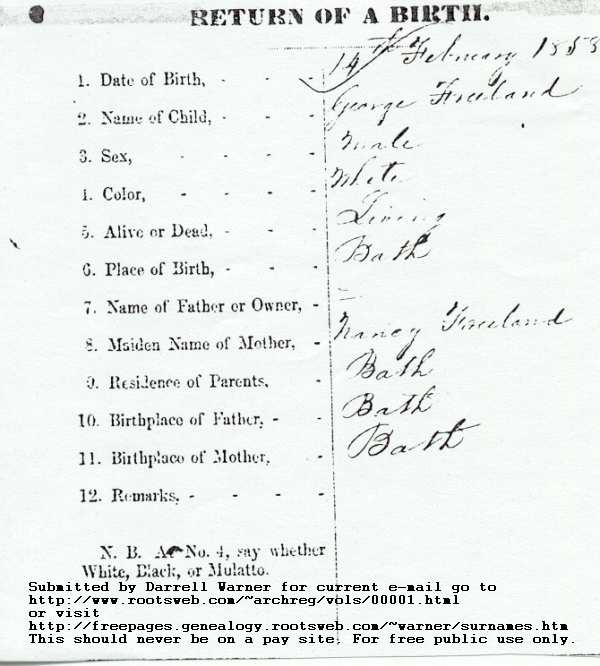 RETURN OF A BIRTH.
1. Date of Birth, - - - 14th February 1858
2. Name of Child, - - - George Freeland
3. Sex, - - - - Male
4. Color, - - - - White
5. Alive or Dead, - - - Living
6. Place of Birth, - - - Bath
7. Name of Father or Owner, - –
8. Maiden Name of Mother, - Nancy Freeland
9. Residence of Parents, - Bath
10. Birthplace of Father, - - Bath
11. Birthplace of Mother, - Bath
12. Remarks, - - - -
N. B. At No. 4, say whether
White, Black, or Mulatto.
Submitted by Darrell Warner for current e-mail go to
http://www.rootsweb.com/~archreg/vols/00001.html
or visit
http://freepages.genealogy.rootsweb.com/~warner/surnames.htm
This should never be on a pay site. For free public use only.